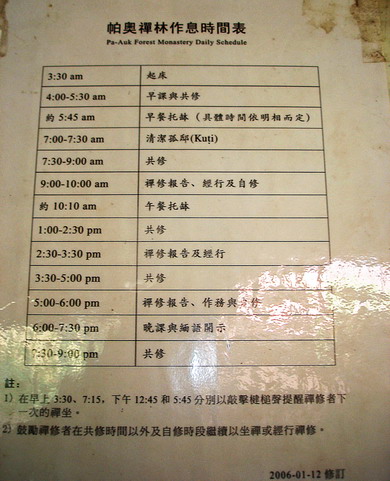 帕奧禪林作息時間表
Pa-Auk Forest Monastery Daily Schedule
3:30 am 起床
4:00-5:30 am 早課與共修
約 5:45 am 早餐托缽（具體時間依明相而定）
7:00-7:30 am 清潔孤邸(Kuṭi)
7:30-9:00 am 共修
9:00-10:00 am 禪修報告、經行及自修
約 10:10 am 午餐托缽
1:00-2:30 pm 共修
2:30-3:30 pm 禪修報告及經行
3:30-5:00 pm 共修
5:00-6:00 pm 禪修報告、作務與自修
6:00-7:30 pm 晚課與緬語開示
7:30-9:00 pm 共修
註：
1) 在早上 3:30、7:15，下午 12:45 和 5:45 分別以敲擊犍槌聲提醒禪修者下
一次的禪坐。
2) 鼓勵禪修者在共修時間以外及自修時段繼續以坐禪或經行禪修。
2006-01-12 修訂